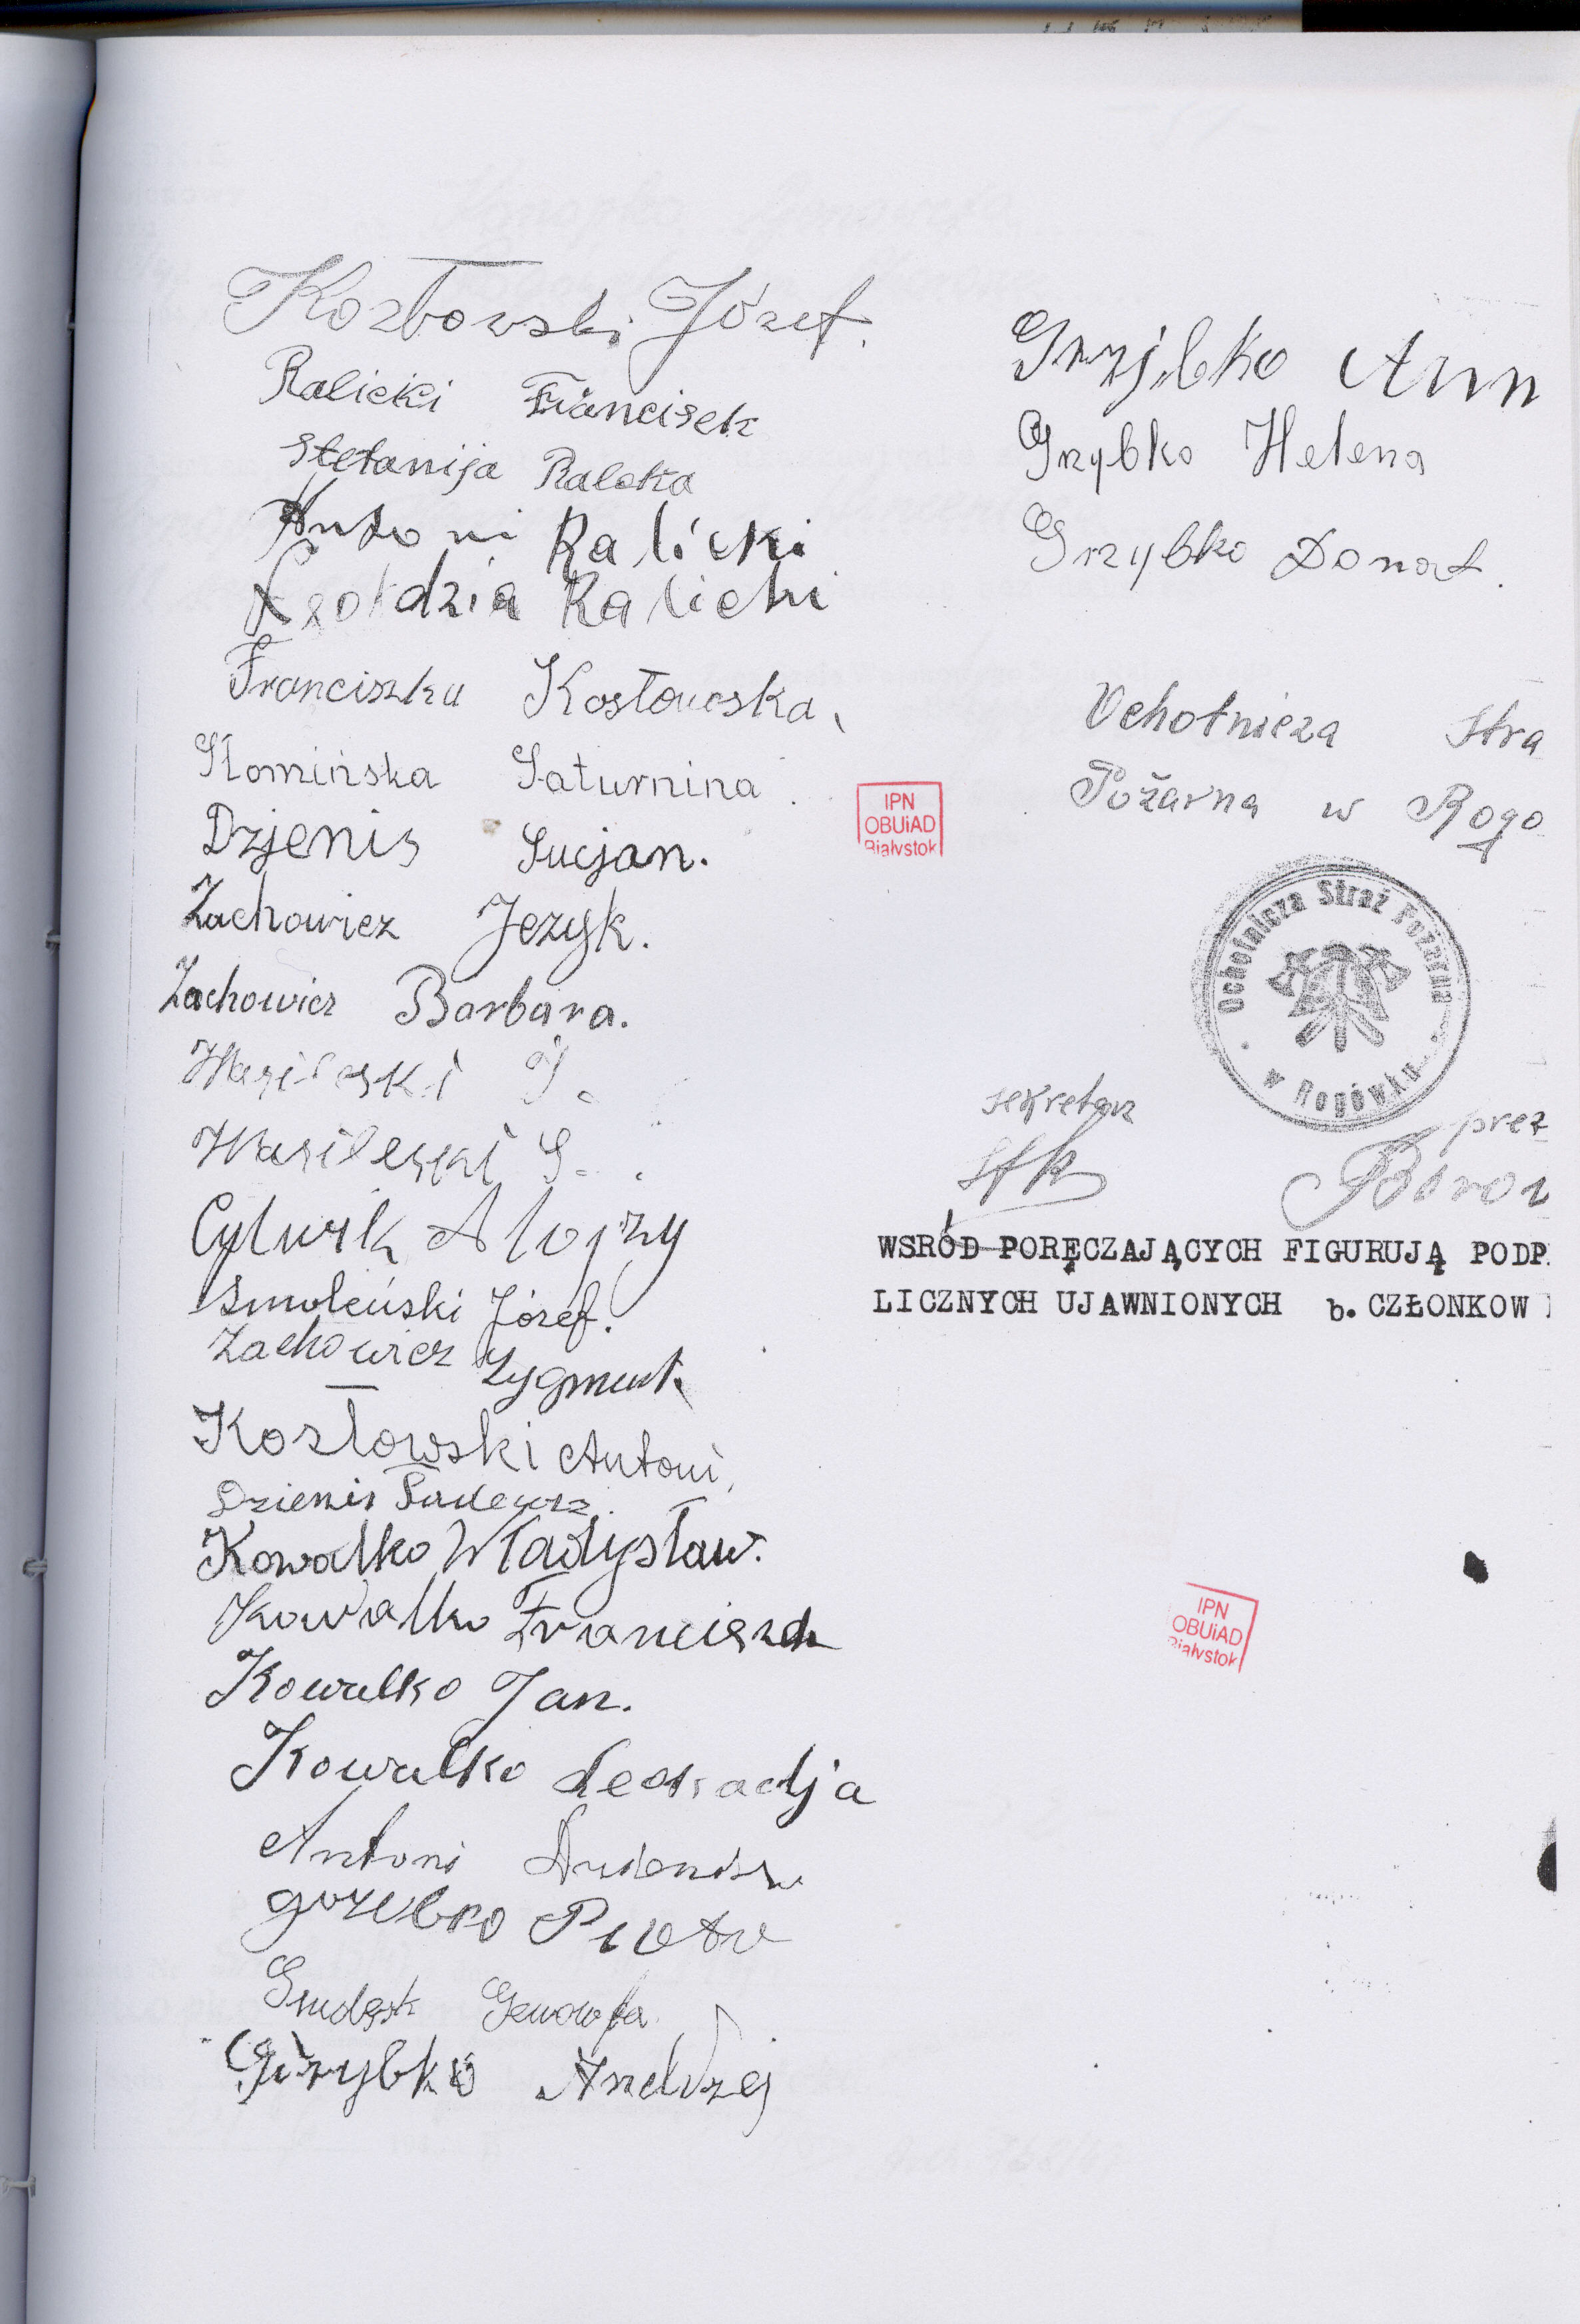 Kozłowski Józef.
Ralicki Francisek
Stefanija Ralcka
Antoni Ralicki
Ralicki
Franciszka Kosłowska
Słomińska Saturnina
Dzjenis Lucjan.
Zachowicz Jezyk.
Zachowicz Barbara.
Wasileski J.
Wasileski S.
Cylwik Alojzy
Smoleński Józef.
Zachowicz Zygmunt.
Kozłowski Antoni
Dzienis
Kowalko Władysław.
Kowalko Franciszek
Kowalko Jan.
Kowalko Leokadja
Antoni
Piotr
Genowefa
Grzybko Andrzej
Grzyjbko Ann
Grzybko Helena
Grzybko Donat.
Ochotnicza Stra
Pożarna w Rogo
IPN
OBUiAD
Białystok
Ochotnicza Straż Pożarna
w Rogówku
sekretarz
prez
WSRÓD PORĘCZAJĄCYCH FIGURUJĄ PODP
LICZNYCH UJAWNIONYCH b. CZŁONKOW
IPN
OBUiAD
Białystok